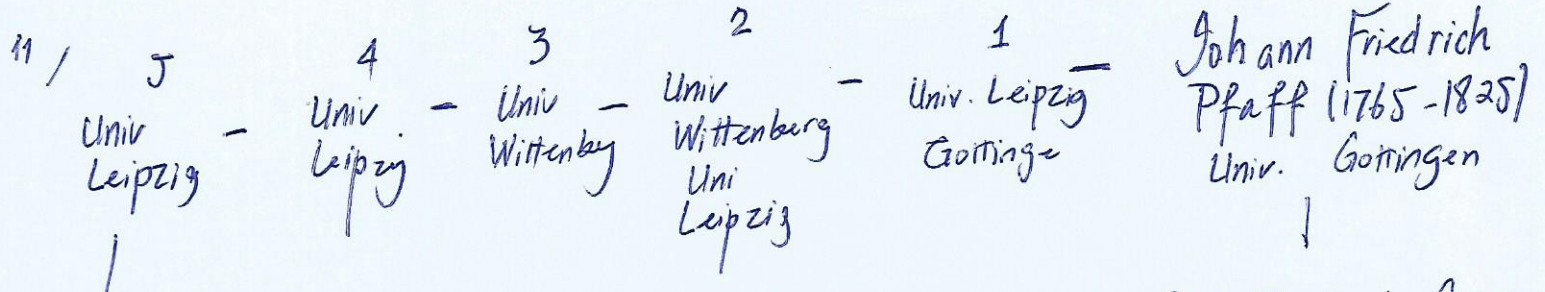 11/
5
Univ
Leipzig
4
Univ.
Leipzig
3
Univ
Wittenbeg
2
Univ
Wittenberg
Uni
Leipzig
1
Univ. Leipzig
Gottinge
Johann Friedrich
Pfaff (1765-1825)
Univ. Gottingen